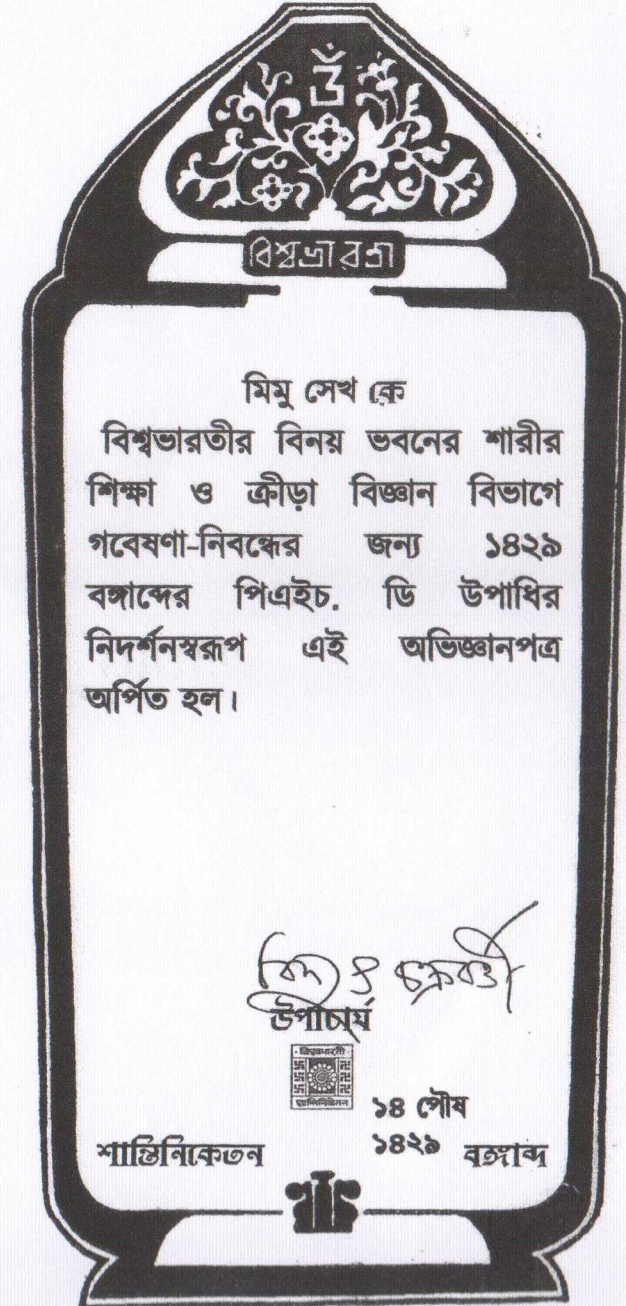 ওঁ
বিশ্বভারতী
মিমু সেখ কে
বিশ্বভারতীর বিনয় ভবনের শারীর
শিক্ষা ও ক্রীড়া বিজ্ঞান বিভাগে
গবেষণা-নিবন্ধের জন্য ১৪২৯
বঙ্গাব্দের পিএইচ. ডি উপাধির
নিদর্শনস্বরূপ এই অভিজ্ঞানপত্র
অর্পিত হল।
চক্রবর্তী
উপাচার্য
১৪ পৌষ
শান্তিনিকেতন ১৪২৯ বঙ্গাব্দ